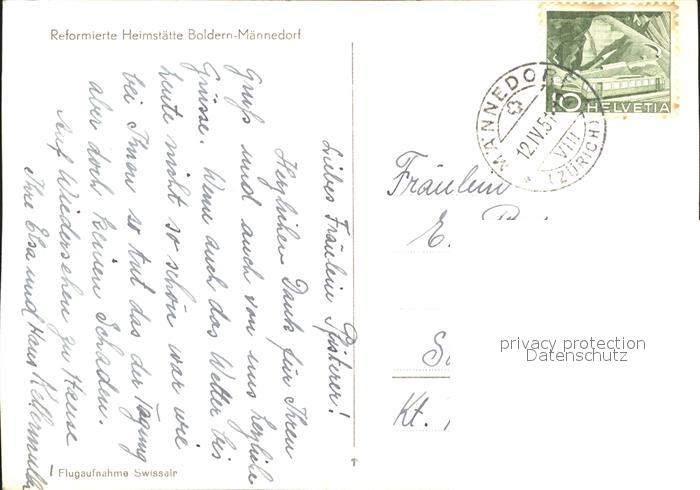 Reformierte Heimstätte Boldern-Männedorf
Liebes Fräulein Pfisterer!
Herzlichen Dank für Ihren
Gruß und auch von uns herzliche
Grüsse. Wenn auch das Wetter bis
heute nicht so schön war wie
bei Ihnen so tut das der Tagung
aber doch keinen Schaden.
Auf Wiedersehen zu Hause
Ihre Elsa und Hans
Flugaufnahme Swissair
MÄNNEDORF
12.IV.51
VIII
(ZÜRICH)
10 HELVETIA
Fräulein
E.
Kt.
privacy protection
Datenschutz